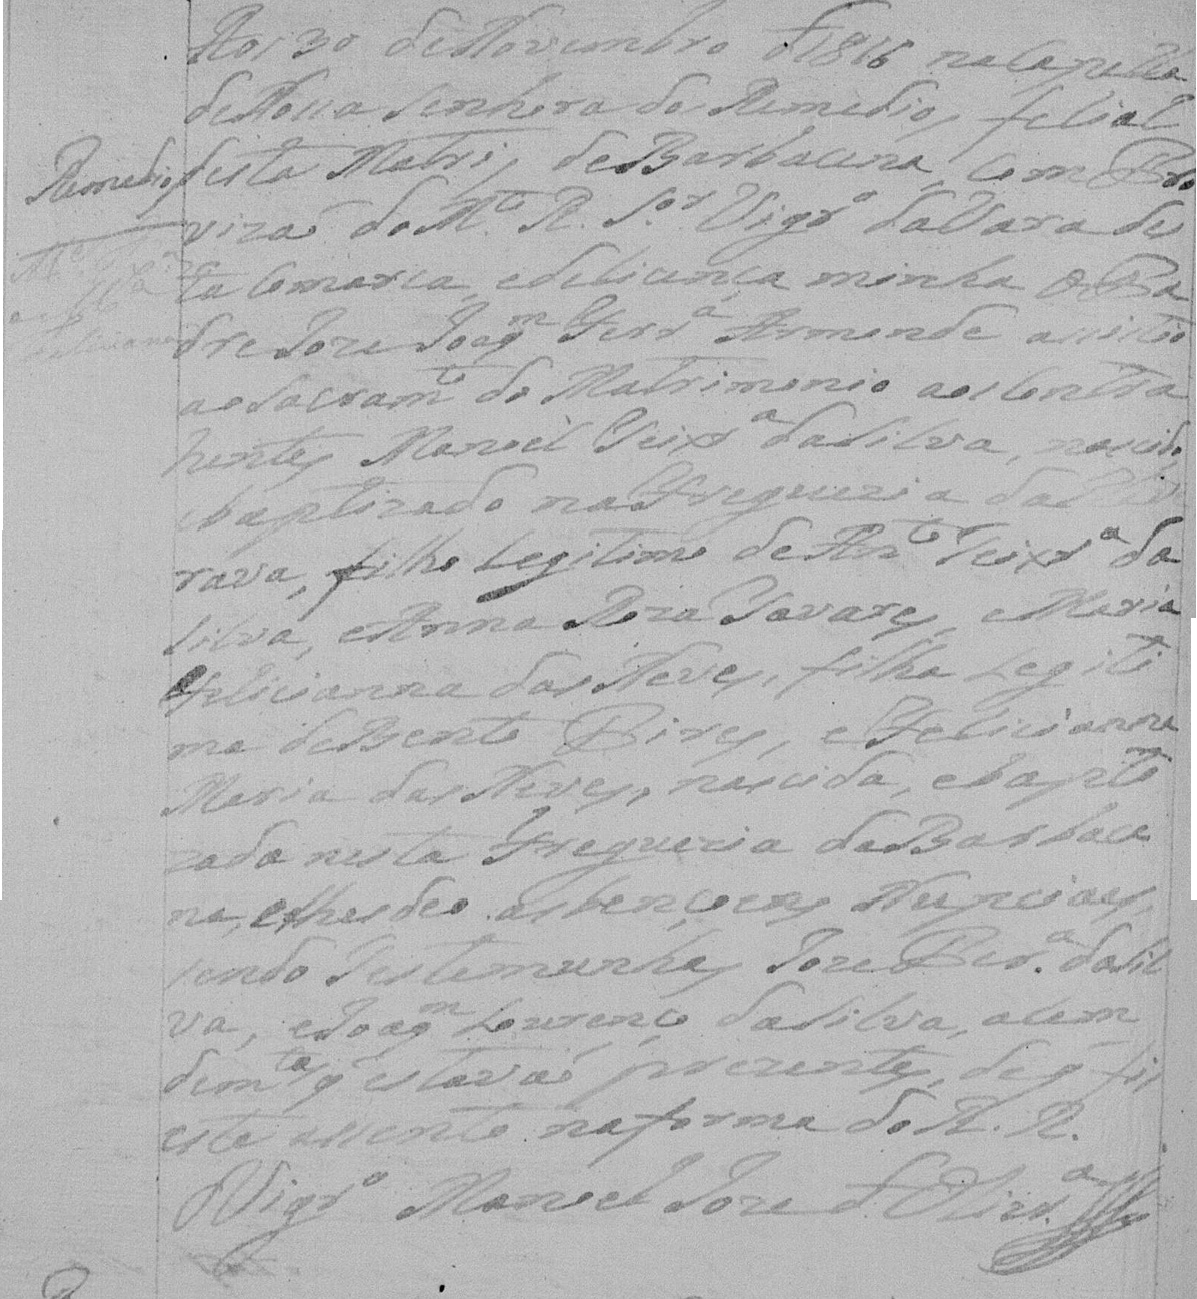 Aos 30 de Novembro d 1816 na Capella
de Nossa Senhora do Remedio, felial
Remedio
desta Matriz de Barbacena, com Pro
vizaõ do M.to R. S.or Vigr.o da Vara des
ta Comarca, e de licença minha o Pa
dre Joze Joaq.m Ferr.a Armonde assistio
ao Sacram.to do Matrimonio aos Contra
hentes Manoel Teixr.a da Silva, nascido,
e baptizado na Freguezia da
rava, filho Legitimo de Ant.o Teixr.a da
Silva, e Anna Roza Tavares, e Maria
Felicianna das Neves, filha Legiti
ma de Bento Pires, e Felicianna
Maria das Neves, nascida, e bapti
zada nesta Freguezia de Barbace
na, e lhes deo as bençoens Nupciaes,
sendo Testemunhas Joze Per.a da Sil
va, e Joaq.m Lourenço da Silva, alem
de m.tas q̃ estavaõ prezentes, de q̃ fis
este assento na forma do R. R.
Vigr.o Manoel Joze d Olivr.a